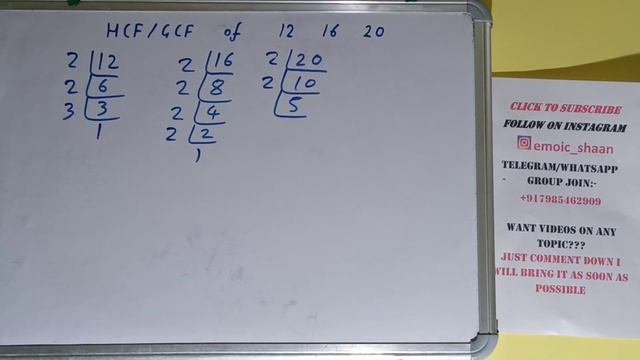 HCF/GCF of 12 16 20
2 12
2 6
3 3
1
2 16
2 8
2 4
2 2
1
2 20
2 10
5
CLICK TO SUBSCRIBE
FOLLOW ON INSTAGRAM
emoic_shaan
TELEGRAM/WHATSAPP
GROUP JOIN:-
+917985462909
WANT VIDEOS ON ANY
TOPIC???
JUST COMMENT DOWN I
WILL BRING IT AS SOON AS
POSSIBLE